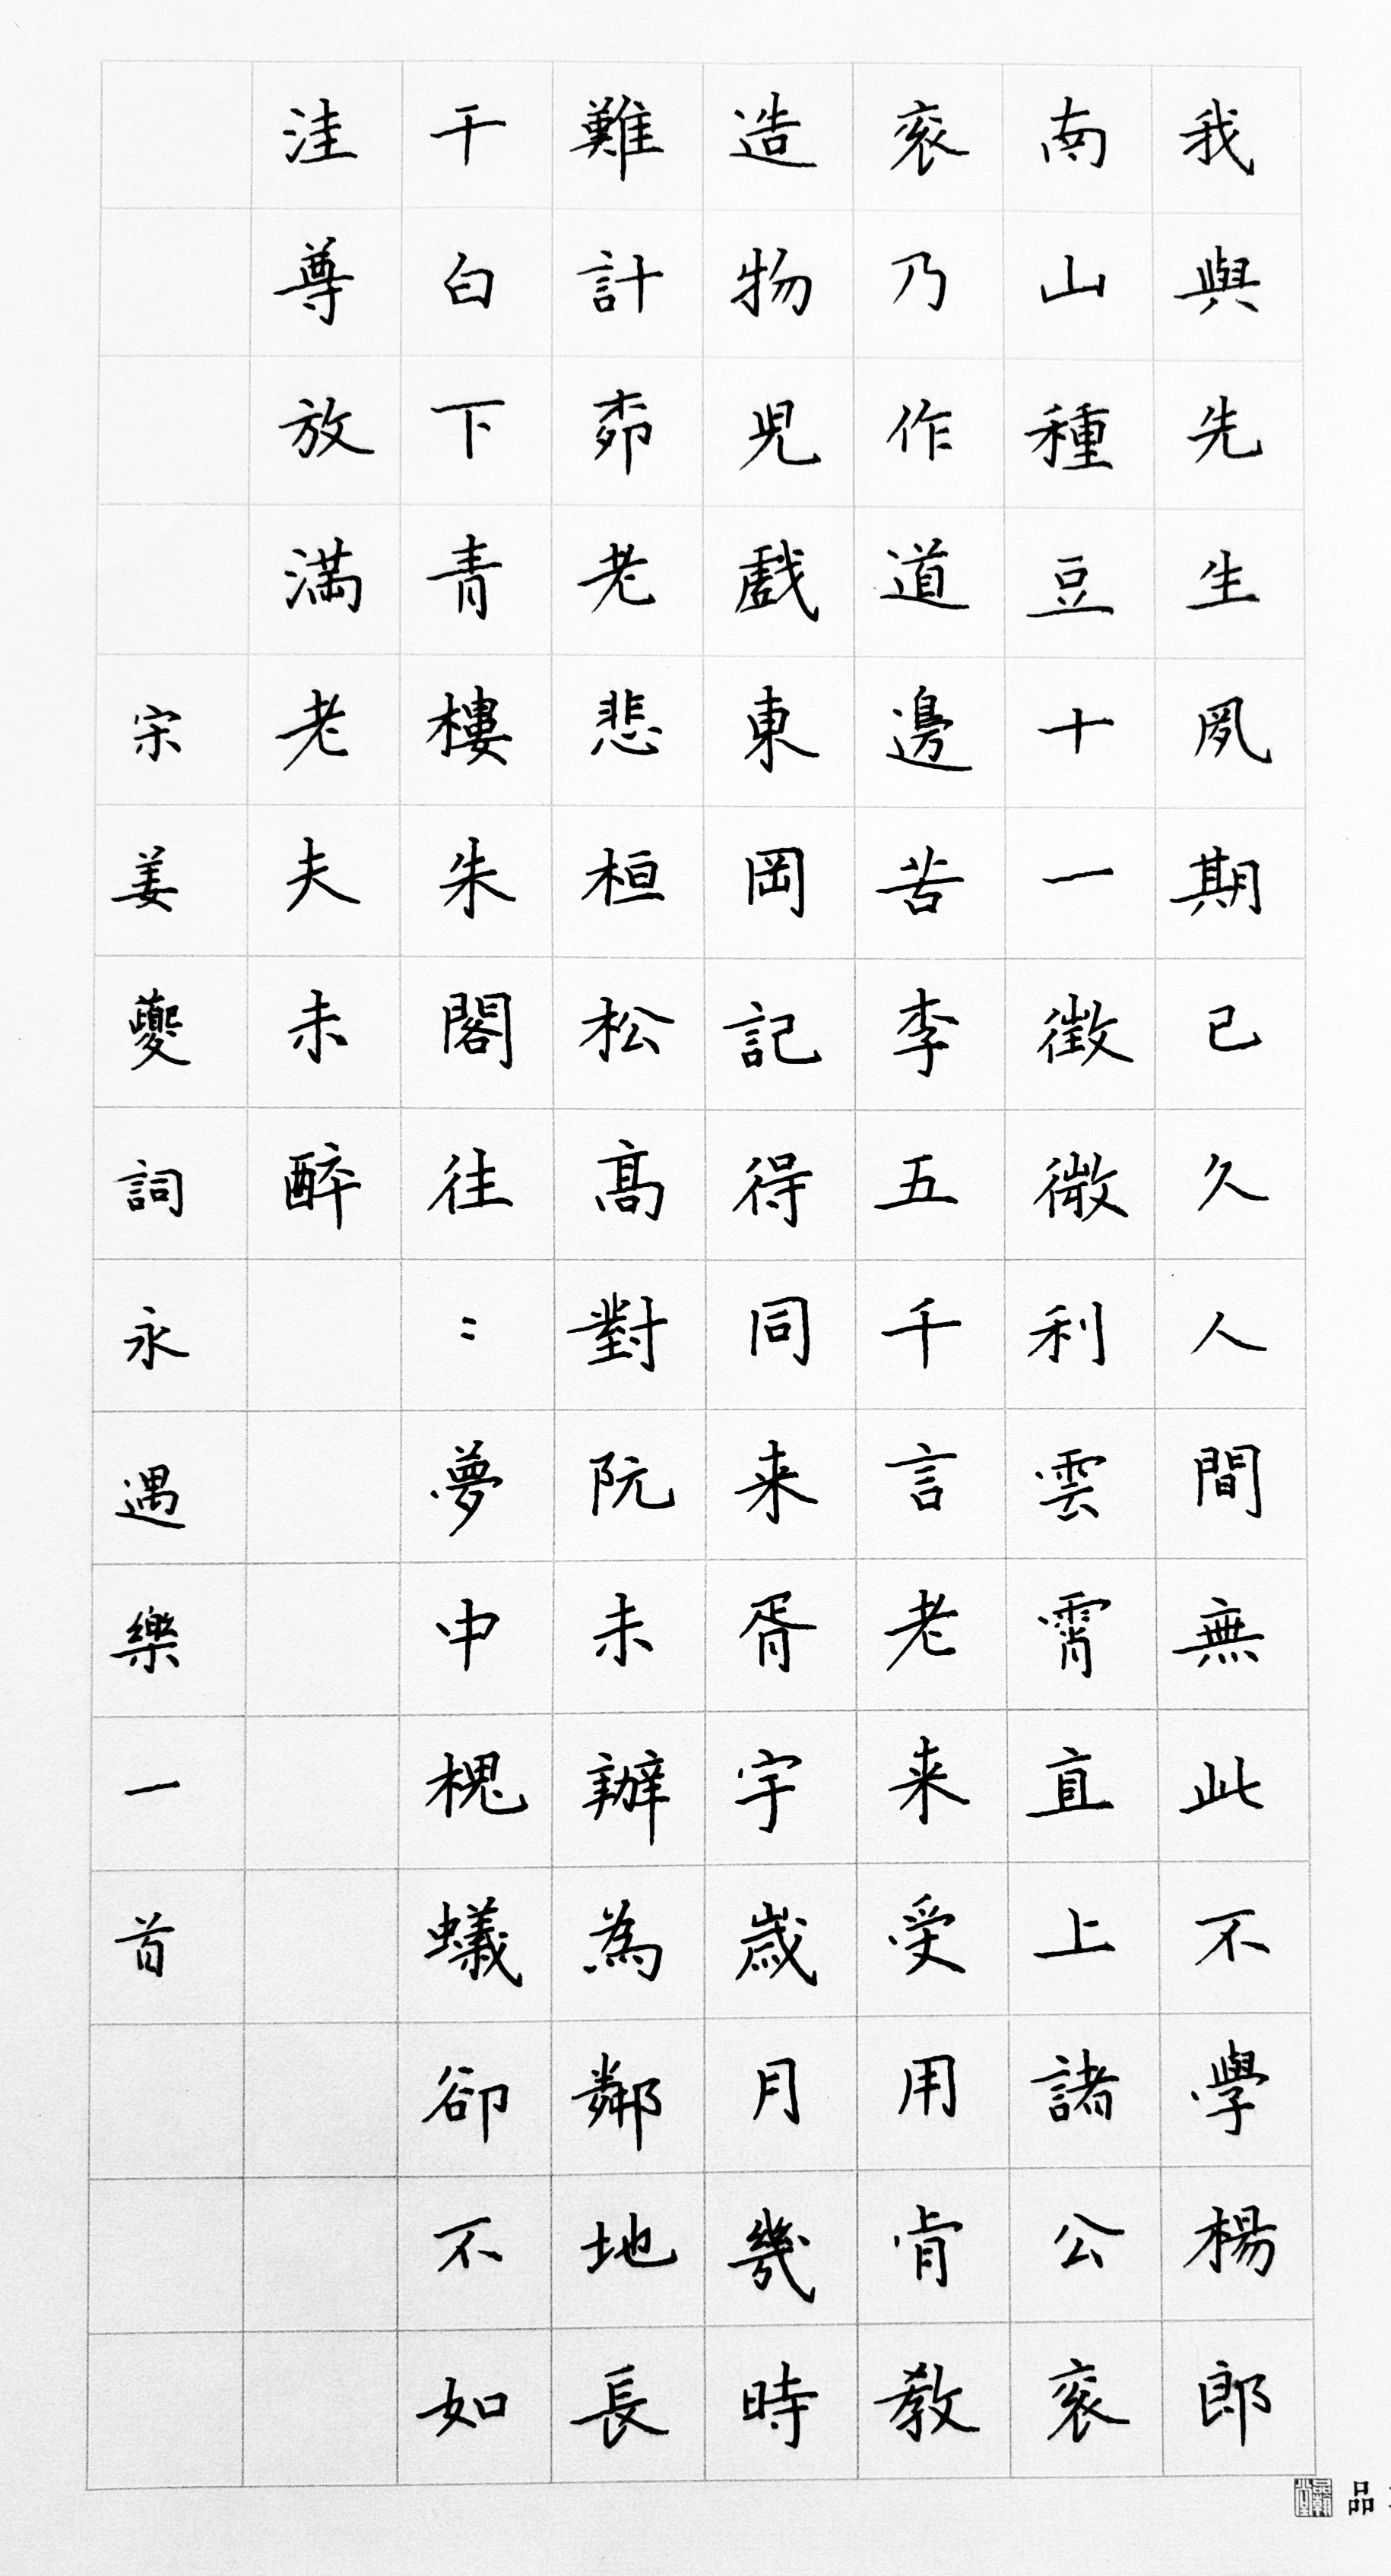 我與先生夙期已久人間無此不學楊郎
南山種豆十一徵微利雲霄直上諸公衮
衮乃作道邊苦李五千言老来受用肯教
造物兒戲東岡記得同来胥宇歲月幾時
難計栁老悲桓松高對阮未辦為鄰地長
干白下青樓朱閣往〻夢中槐蟻卻不如
洼尊放滿老夫未醉
宋姜夔詞永遇樂一首
品